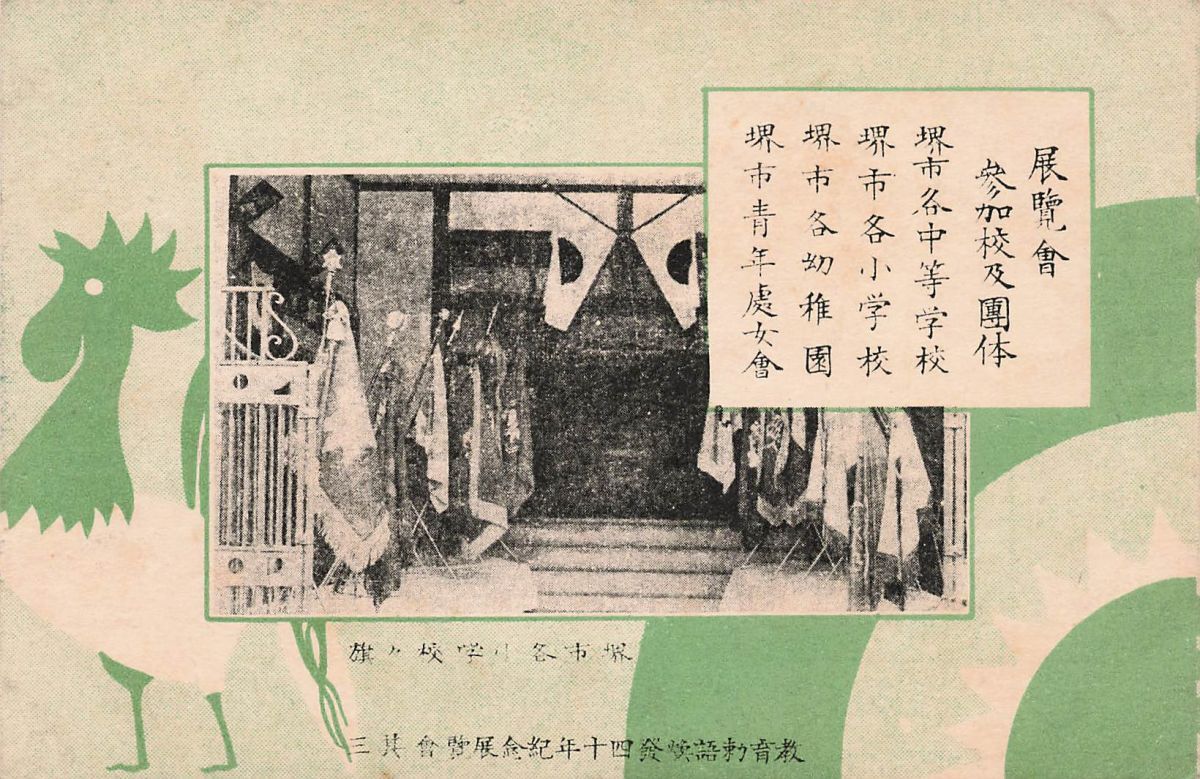 展覽會
參加校及團体
堺市各中等学校
堺市各小学校
堺市各幼稚園
堺市青年處女會
堺市各小学校々旗
教育勅語煥發四十年紀念展覽會其三